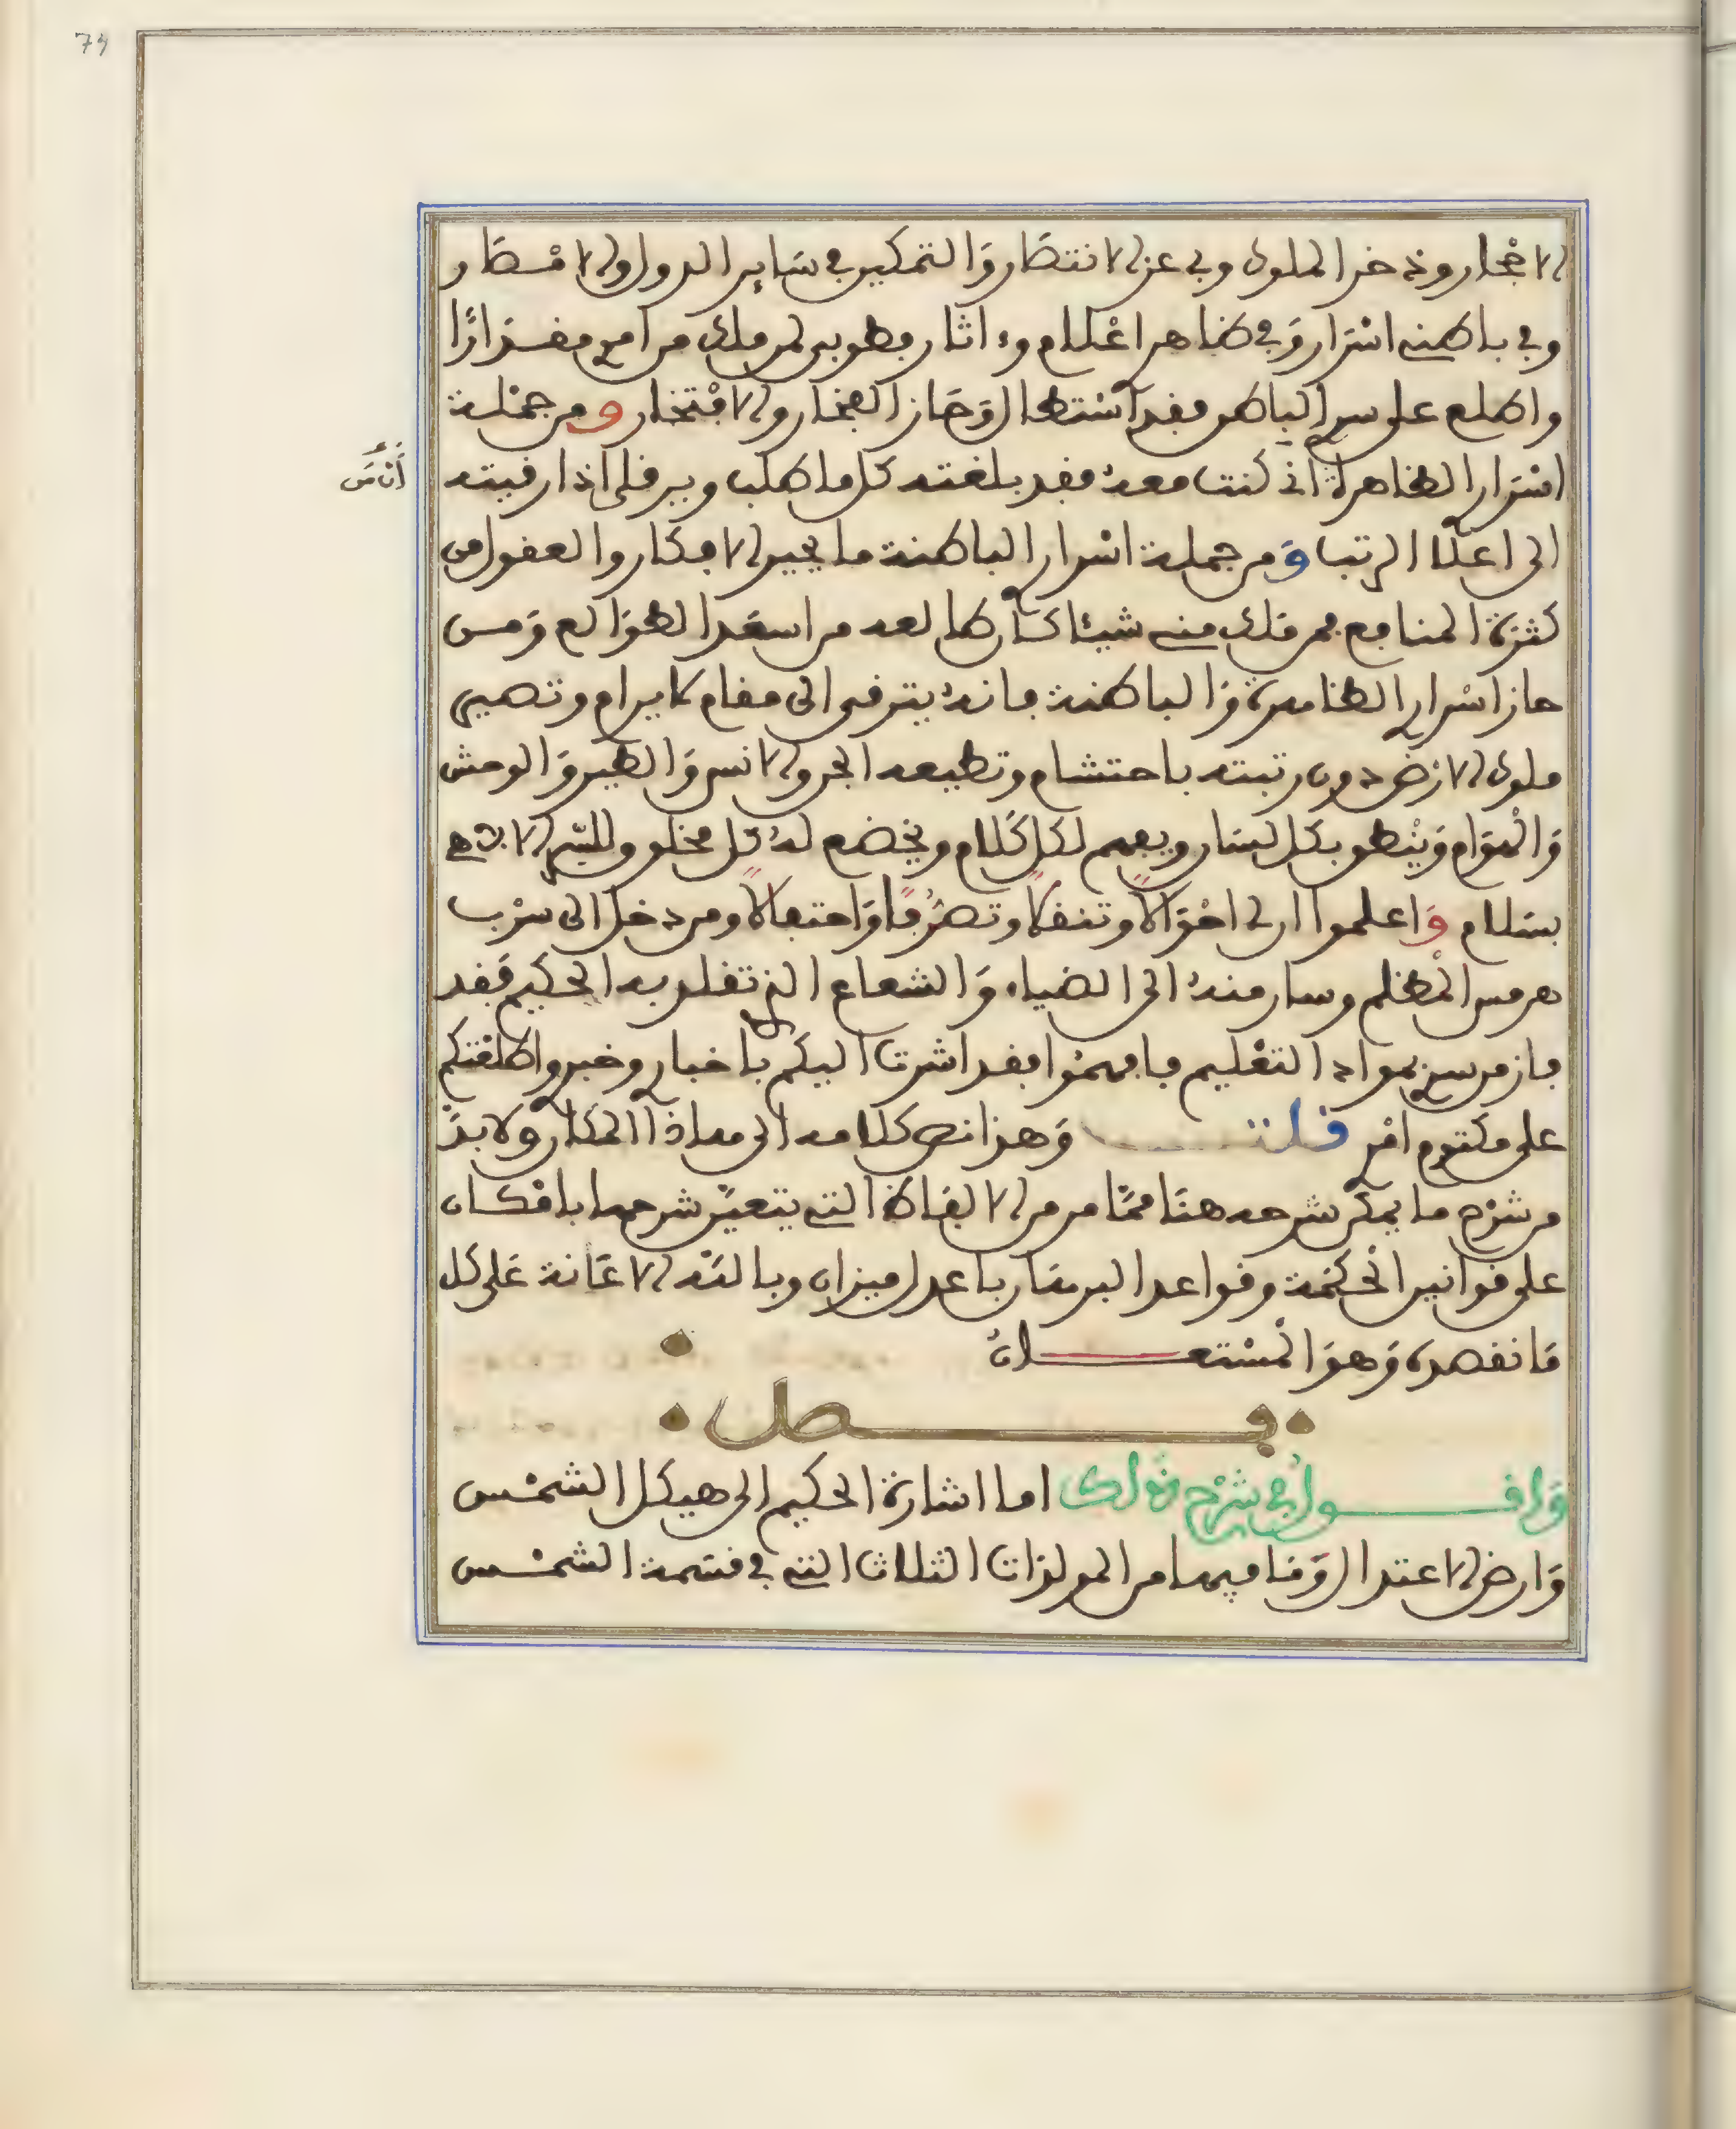 79
الاحجار وذخر الملوك وبي عز الانتصار والتمكين في ساير الدول والامصار
وفي باطنى اسرار وفي ظاهر اعلام وءاثار فطوبى لمن ملك من امرى مقدارًا
واطلع على سرى الباطن فقد استطال وحاز الفخار والافتخار ومن جملة
اسرارى الظاهرة اني كنت معه فقد بلغته كل ما طلب ويرقى اذا رقيته
الى اعلا الرتب ومن جملة اسرارى الباطنة ما يحير الافكار والعقول من
كثرة المنافع فمن ملك منى شيئا كان طالعه من اسعد الطوالع ومن
حاز اسرارى الظاهرة والباطنة فانه يترقى الى مقام لا يرام وتصير
ملوك الارض دون رتبته باحتشام وتطيعه الجن والانس والطير والوحش
والهوام وينطق بكل لسان ويفهم لكل كلام ويخضع له كل مخلوق
بسلام واعلموا ان لى احوالًا وتنقلًا وتصرفًا واحتفالًا ومن دخل الى سرب
هرمس المظلم وسار منه الى الضياء والشعاع الذي تقلد به الحكيم فقد
فاز من سرى بمواد التعليم فافهموا فقد اشرت اليكم باخبارى وخبرى واطلعتكم
على مكتوم امرى قلت وهذا نص كلامه الى هاذا المكان ولا بد
من شرح ما يمكن شرحه هنا ممّا مر من الالفاظ التى يتعين شرحها بامكان
على قوانين الحكمة وقواعد البرهان باعدل ميزان وبالله الاعانة على كل
ما نقصده وهو المستعان
فصل
واقول في شرح ذلك اما اشارة الحكيم الى هيكل الشمس
وارض الاعتدال وما فيها من المولدات الثلاث التى في قسمة الشمس